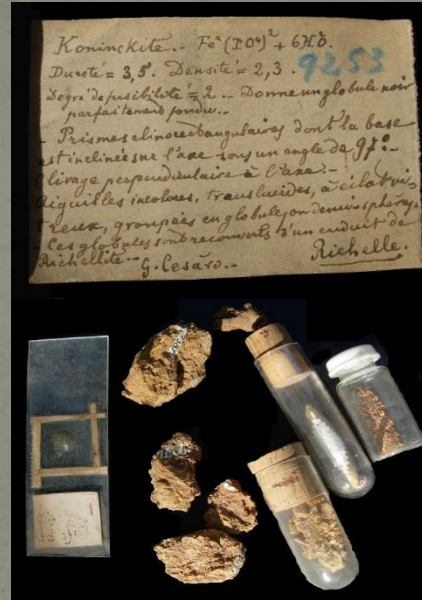 Koninckite.- Fe²(PO⁴)² + 6H²O.
9253
Dureté = 3,5. Densité = 2,3.
Degré de fusibilité = 2.- Donne un globule noir
parfaitement fondu.-
- Prismes clinorectangulaires dont la base
est inclinée sur l'axe sous un angle de 97°.-
Clivage perpendiculaire à l'axe.-
Aiguilles incolores, translucides, à éclat vi-
treux, groupées en globules ou demi-sphères.-
- Ces globules sont recouverts d'un enduit de
Richellite.- G. Cesàro.-
Richelle.